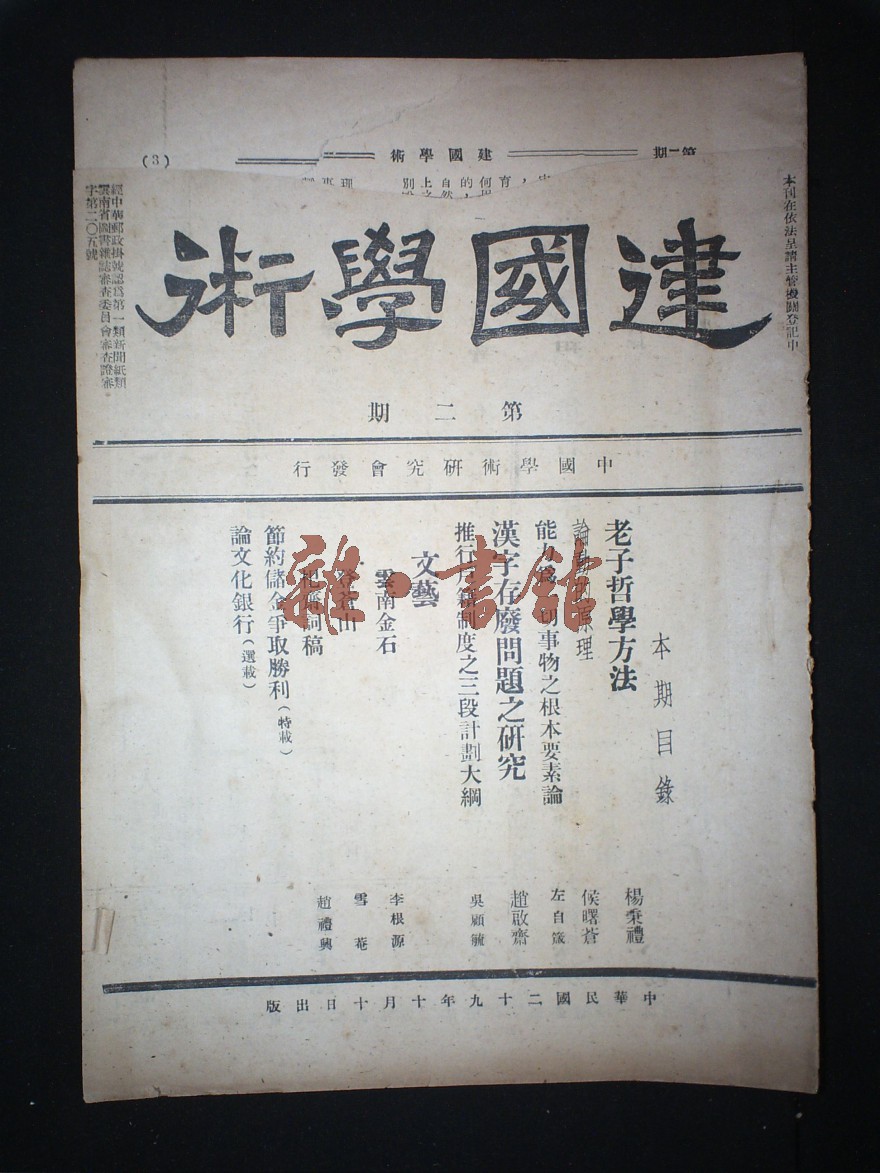 第二期
建國學術
(3)
本刊在依法呈請主管機關登記中
建國學術
經中華郵政掛號認爲第一類新聞紙類
雲南省圖書雜誌審查委員會審查證審
字第二〇五號
第二期
中國學術研究會發行
本期目錄
老子哲學方法 楊秉禮
論動的原理 侯曙蒼
能力爲一切事物之根本要素論 左自箴
漢字存廢問題之研究 趙啟齋
推行戶籍制度之三段計劃大綱 吳顧毓
文藝
雲南金石 李根源
登蒼山 雪菴
杞齋詞稿 趙禮興
節約儲金爭取勝利(特載)
論文化銀行(選載)
中華民國二十九年十月十日出版
雜·書館